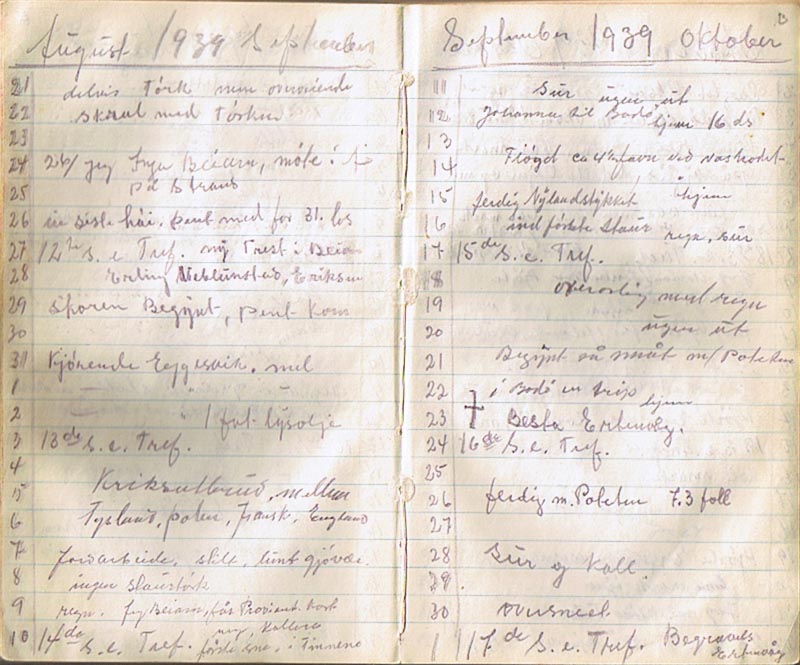 August 1939 September
21 delvis tørk men overveiende
22 skral med tørken
23
24 26/ jeg Beiarn, møte i
25 på Strand
26 siste høi. pent med for 31. les
27 12te S. e. Tref. ny Prest i Beia
28 Erling Eriksen
29 Skoren Begynt, pent Korn
30
31 Kjørende Eggesvik. mel
1
2 " 1 fat lysolje
3 13de S. e. Tref.
4
5 Kriksutbrud, mellem
6 Tysland, polen, fransk, England
7 Jordarbeide, stilt, lunt
8 ingen staurtørk
9 regn. Beiarn, fås Proviant.kort
10 14de S. e. Tref. første sne, i Tinnene
September 1939 Oktober
11 Sur ugen ut
12 Johanna til Bodø, hjem 16 ds
13
14 ca favn ved
15 ferdig Nylandstykket hjem
16 ind første Staur
17 15de S. e. Tref. regn, sur
18
19 overordlig med regn
20 ugen ut
21 Begynt så smått m/ Poteten
22 i Bodø en trip hjem
23 † Besta
24 16de S. e. Tref.
25
26 ferdig m. Poteten 7.3 foll
27
28 Sur og Kall.
29
30
1 17de S. e. Tref. Begravels